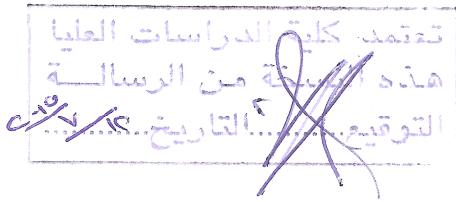 تعتمد كلية الدراسات العليا
هذه النسخة من الرسالة
التوقيع............التاريخ............